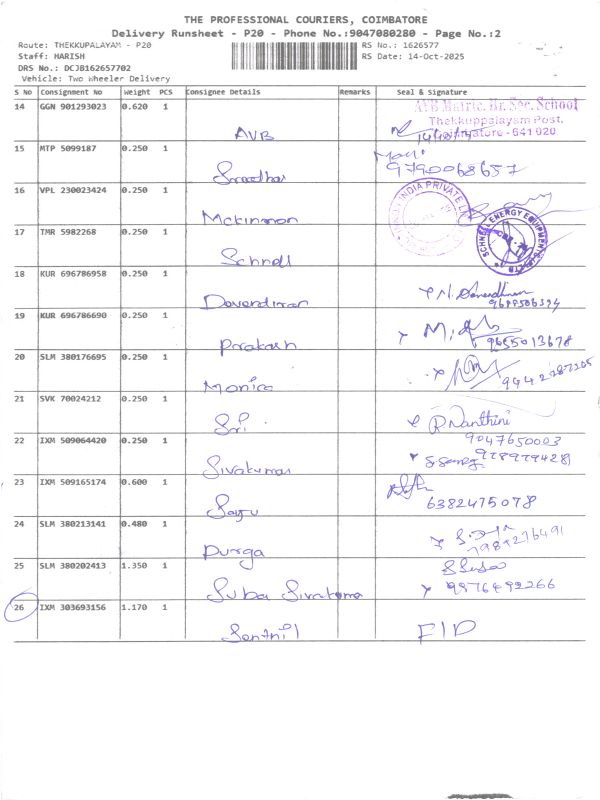 THE PROFESSIONAL COURIERS, COIMBATORE
Delivery Runsheet - P20 - Phone No.:9047080280 - Page No.:2
Route: THEKKUPALAYAM - P20 RS No.: 1626577
Staff: HARISH RS Date: 14-Oct-2025
DRS No.: DCJB162657702
Vehicle: Two Wheeler Delivery
S No Consignment No Weight PCS Consignee Details Remarks Seal & Signature
14 GGN 901293023 0.620 1 AVB AVB Matric. Hr. Sec. School
Thekkuppalayam Post.
Coimbatore - 641 020.
15 MTP 5099187 0.250 1
9790068657
16 VPL 230023424 0.250 1 Mckinnon INDIA PRIVATE
17 TMR 5982268 0.250 1 Schnell SCHNELL ENERGY EQUIPMENTS
18 KUR 696786958 0.250 1 Devendiran
19 KUR 696786690 0.250 1 Prakash 9655013678
20 SLM 380176695 0.250 1 Monica
21 SVK 70024212 0.250 1 Sri R Nanthini
9047650003
22 IXM 509064420 0.250 1 Sivakumar
23 IXM 509165174 0.600 1 6382475078
24 SLM 380213141 0.480 1 Durga
25 SLM 380202413 1.350 1 Suba Sivakuma
26 IXM 303693156 1.170 1